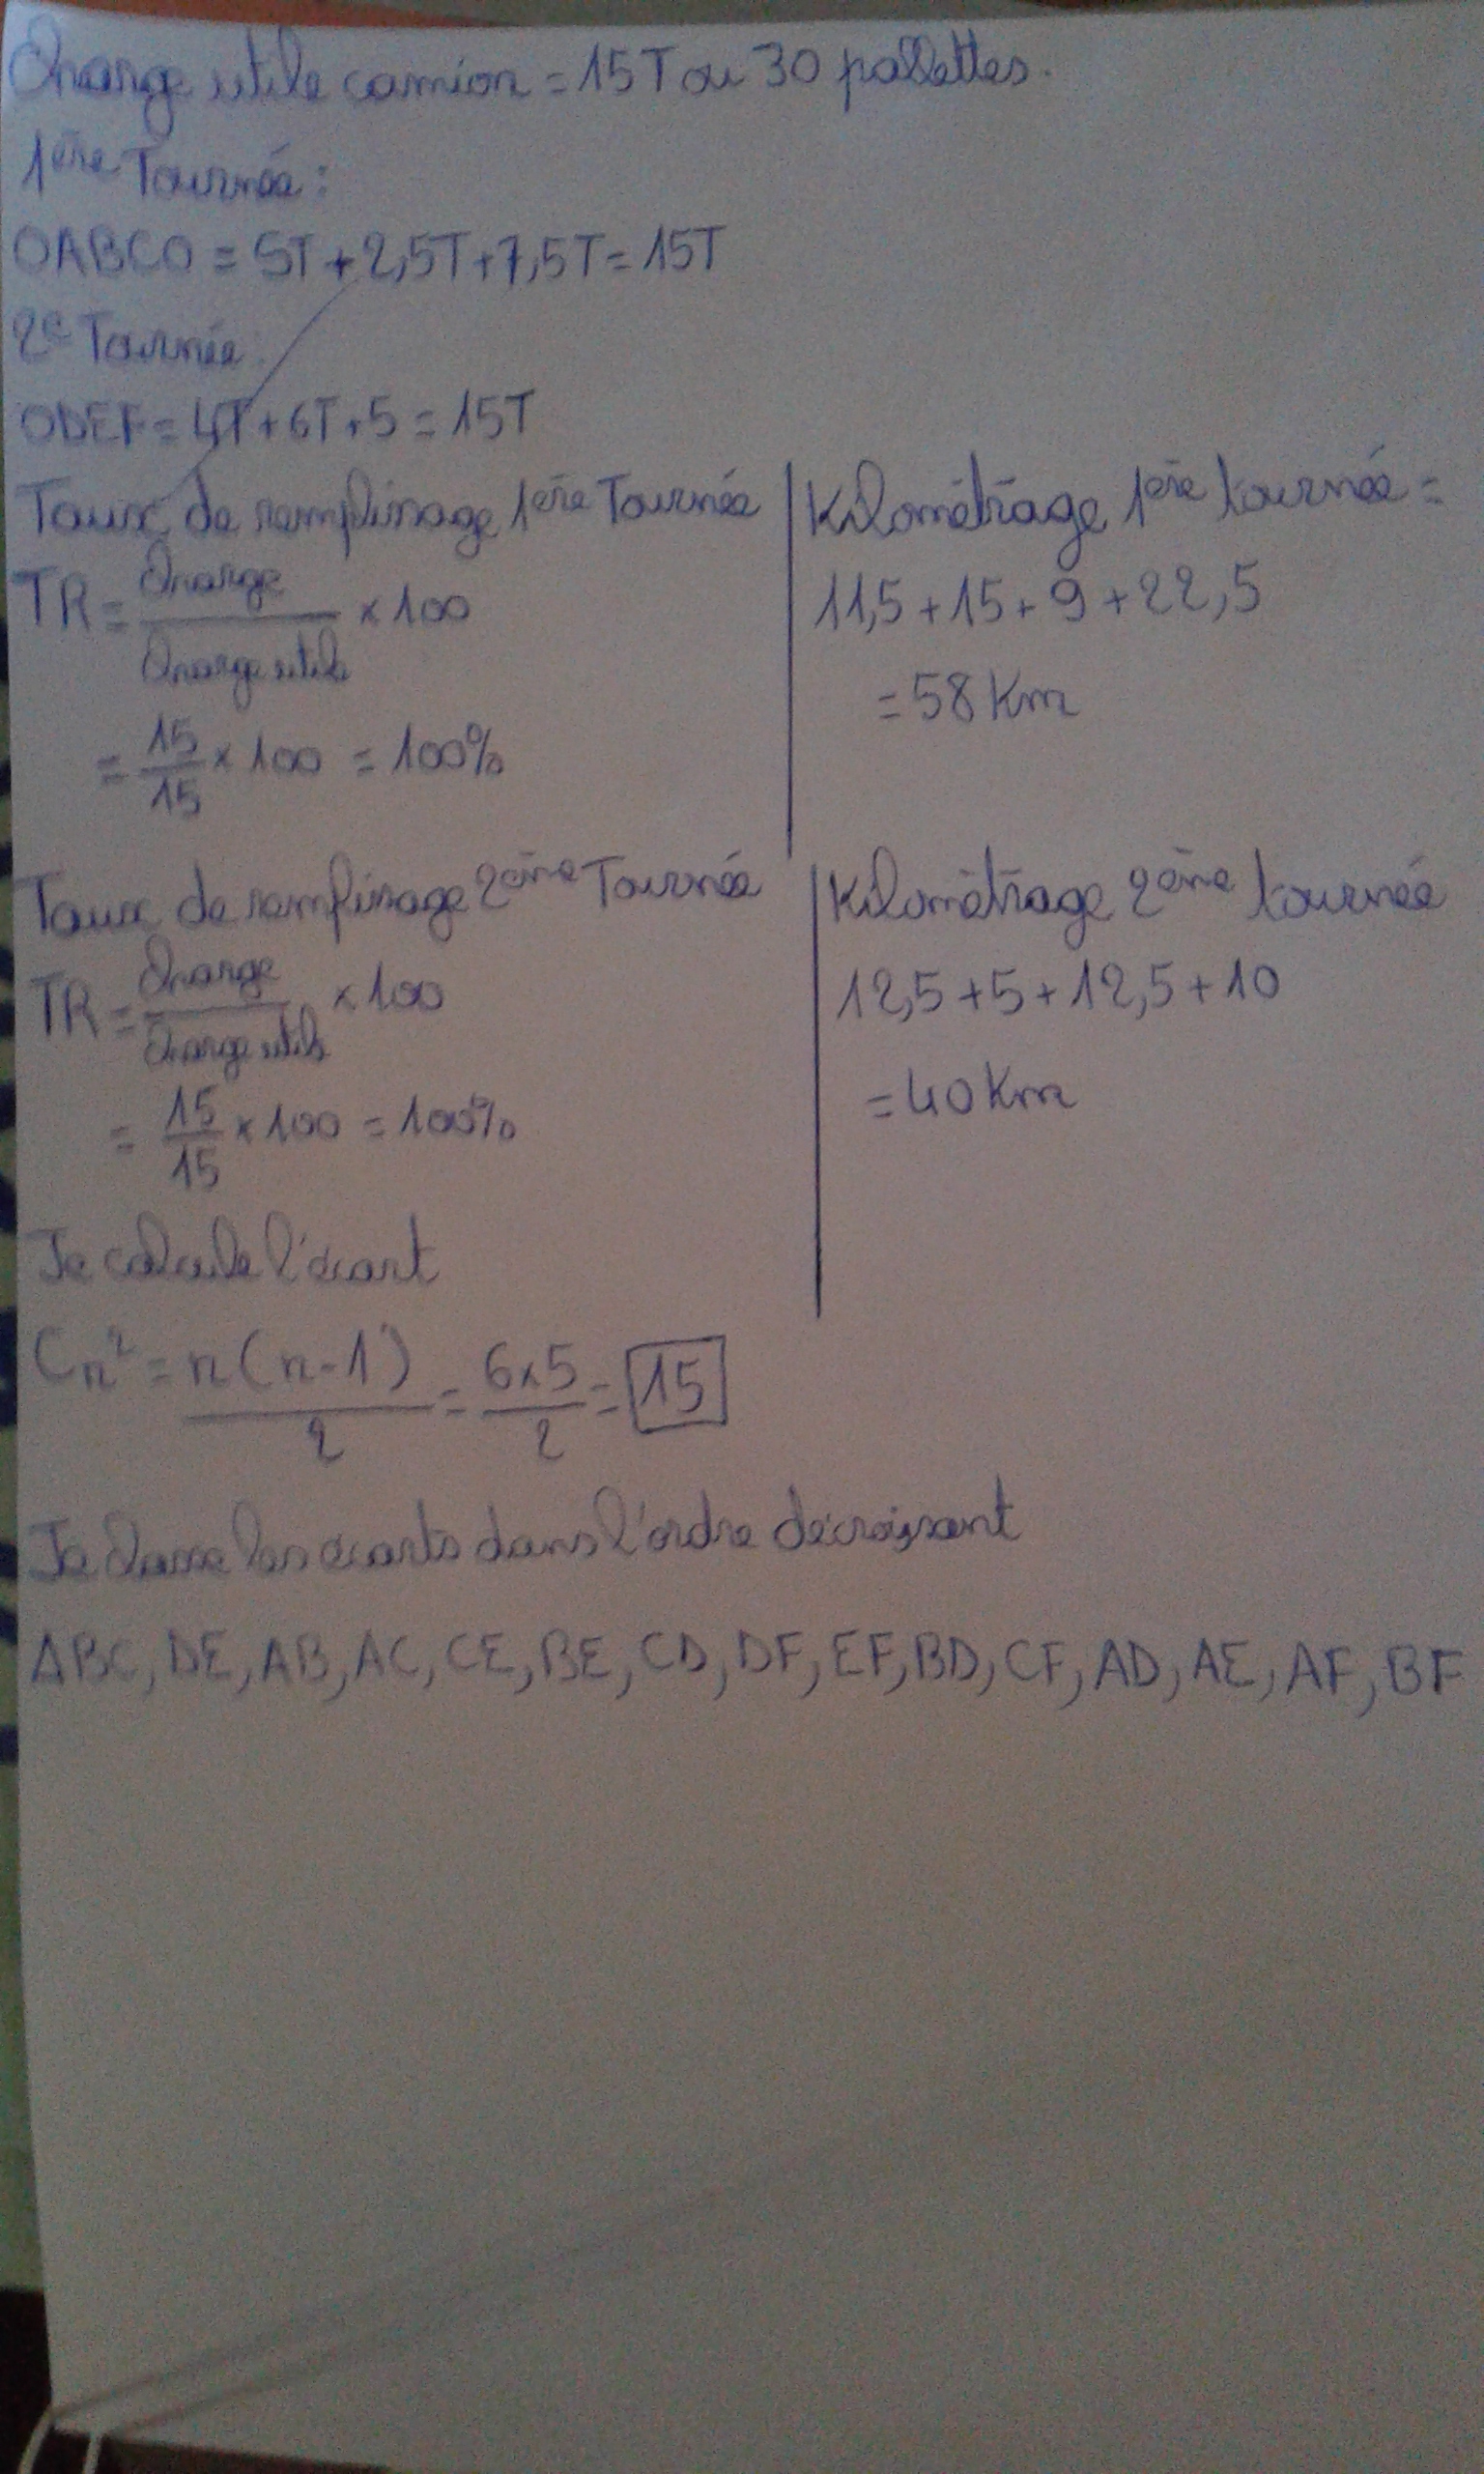 Charge utile camion = 15T ou 30 pallettes.
1ère Tournée :
OABCO = 5T + 2,5T + 7,5T = 15T
2e Tournée :
ODEF = 4T + 6T + 5 = 15T
Taux de remplissage 1ère Tournée
TR = Charge / Charge utile × 100
= 15/15 × 100 = 100%
Kilométrage 1ère tournée =
11,5 + 15 + 9 + 22,5
= 58 Km
Taux de remplissage 2ème Tournée
TR = Charge / Charge utile × 100
= 15/15 × 100 = 100%
Kilométrage 2ème tournée
12,5 + 5 + 12,5 + 10
= 40 Km
Je calcule l'écart
Cn² = n(n-1) / 2 = 6×5 / 2 = 15
Je classe les écarts dans l'ordre décroissant
ΔBC, DE, AB, AC, CE, BE, CD, DF, EF, BD, CF, AD, AE, AF, BF